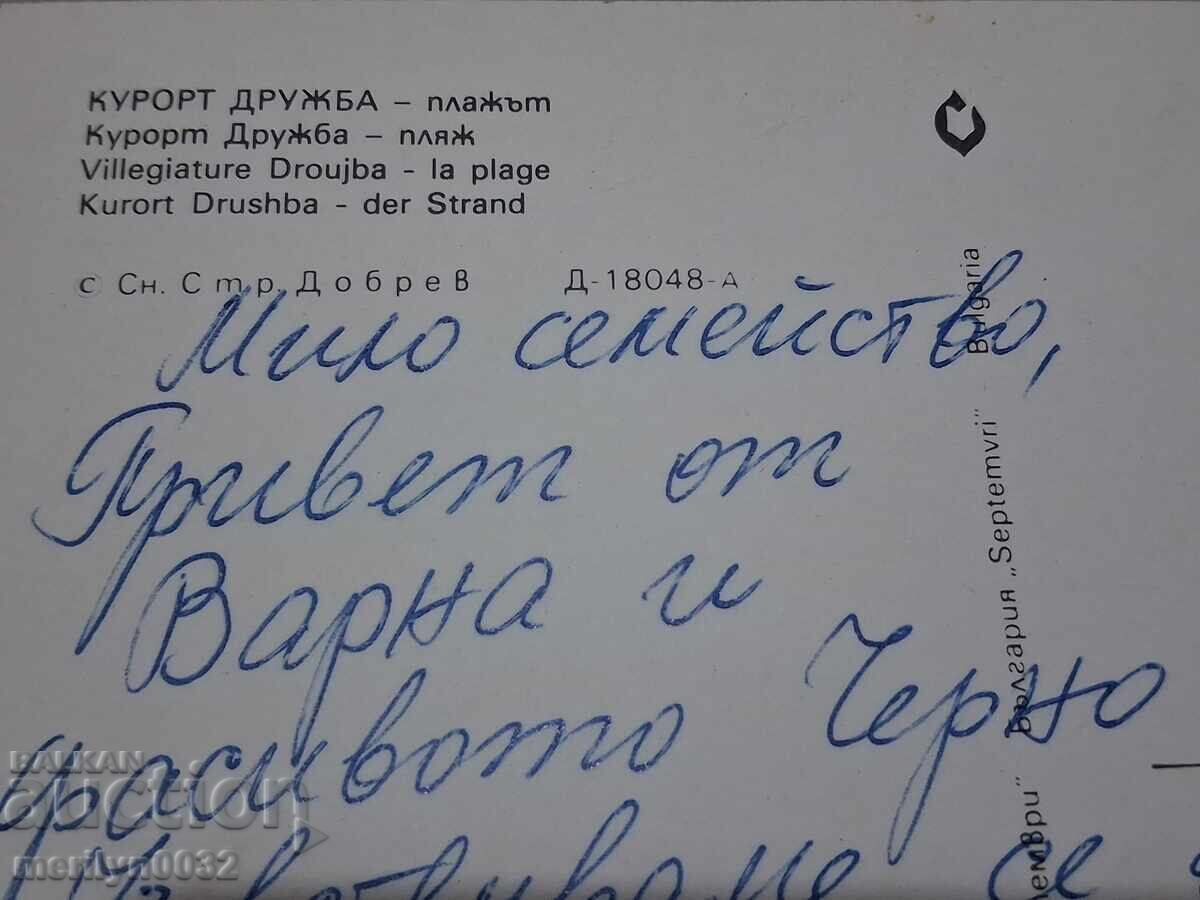 КУРОРТ ДРУЖБА – плажът
Курорт Дружба – пляж
Villegiature Droujba - la plage
Kurort Drushba - der Strand
с Сн. Стр. Добрев Д-18048-А
Мило семейство,
Привет от
Варна и
красивото Черно
се
България „Septemvri" Bulgaria
ември"
BALKAN
auction
merilyn0032